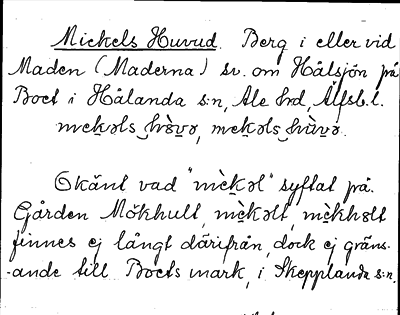 Mickels Huvud. Berg i eller vid
Maden (Maderna) sv. om Hålsjön på
Boet i Hålanda s:n, Ale hrd, Älfsb. l.
mekəls hòvə, mekəls hùvə.
Okänt vad "mèkəl" syftat på.
Gården Mökhult, mèkəlt, mèkhəlt
finnes ej långt därifrån, dock ej gräns-
-ande till Boets mark, i Skepplanda s:n.